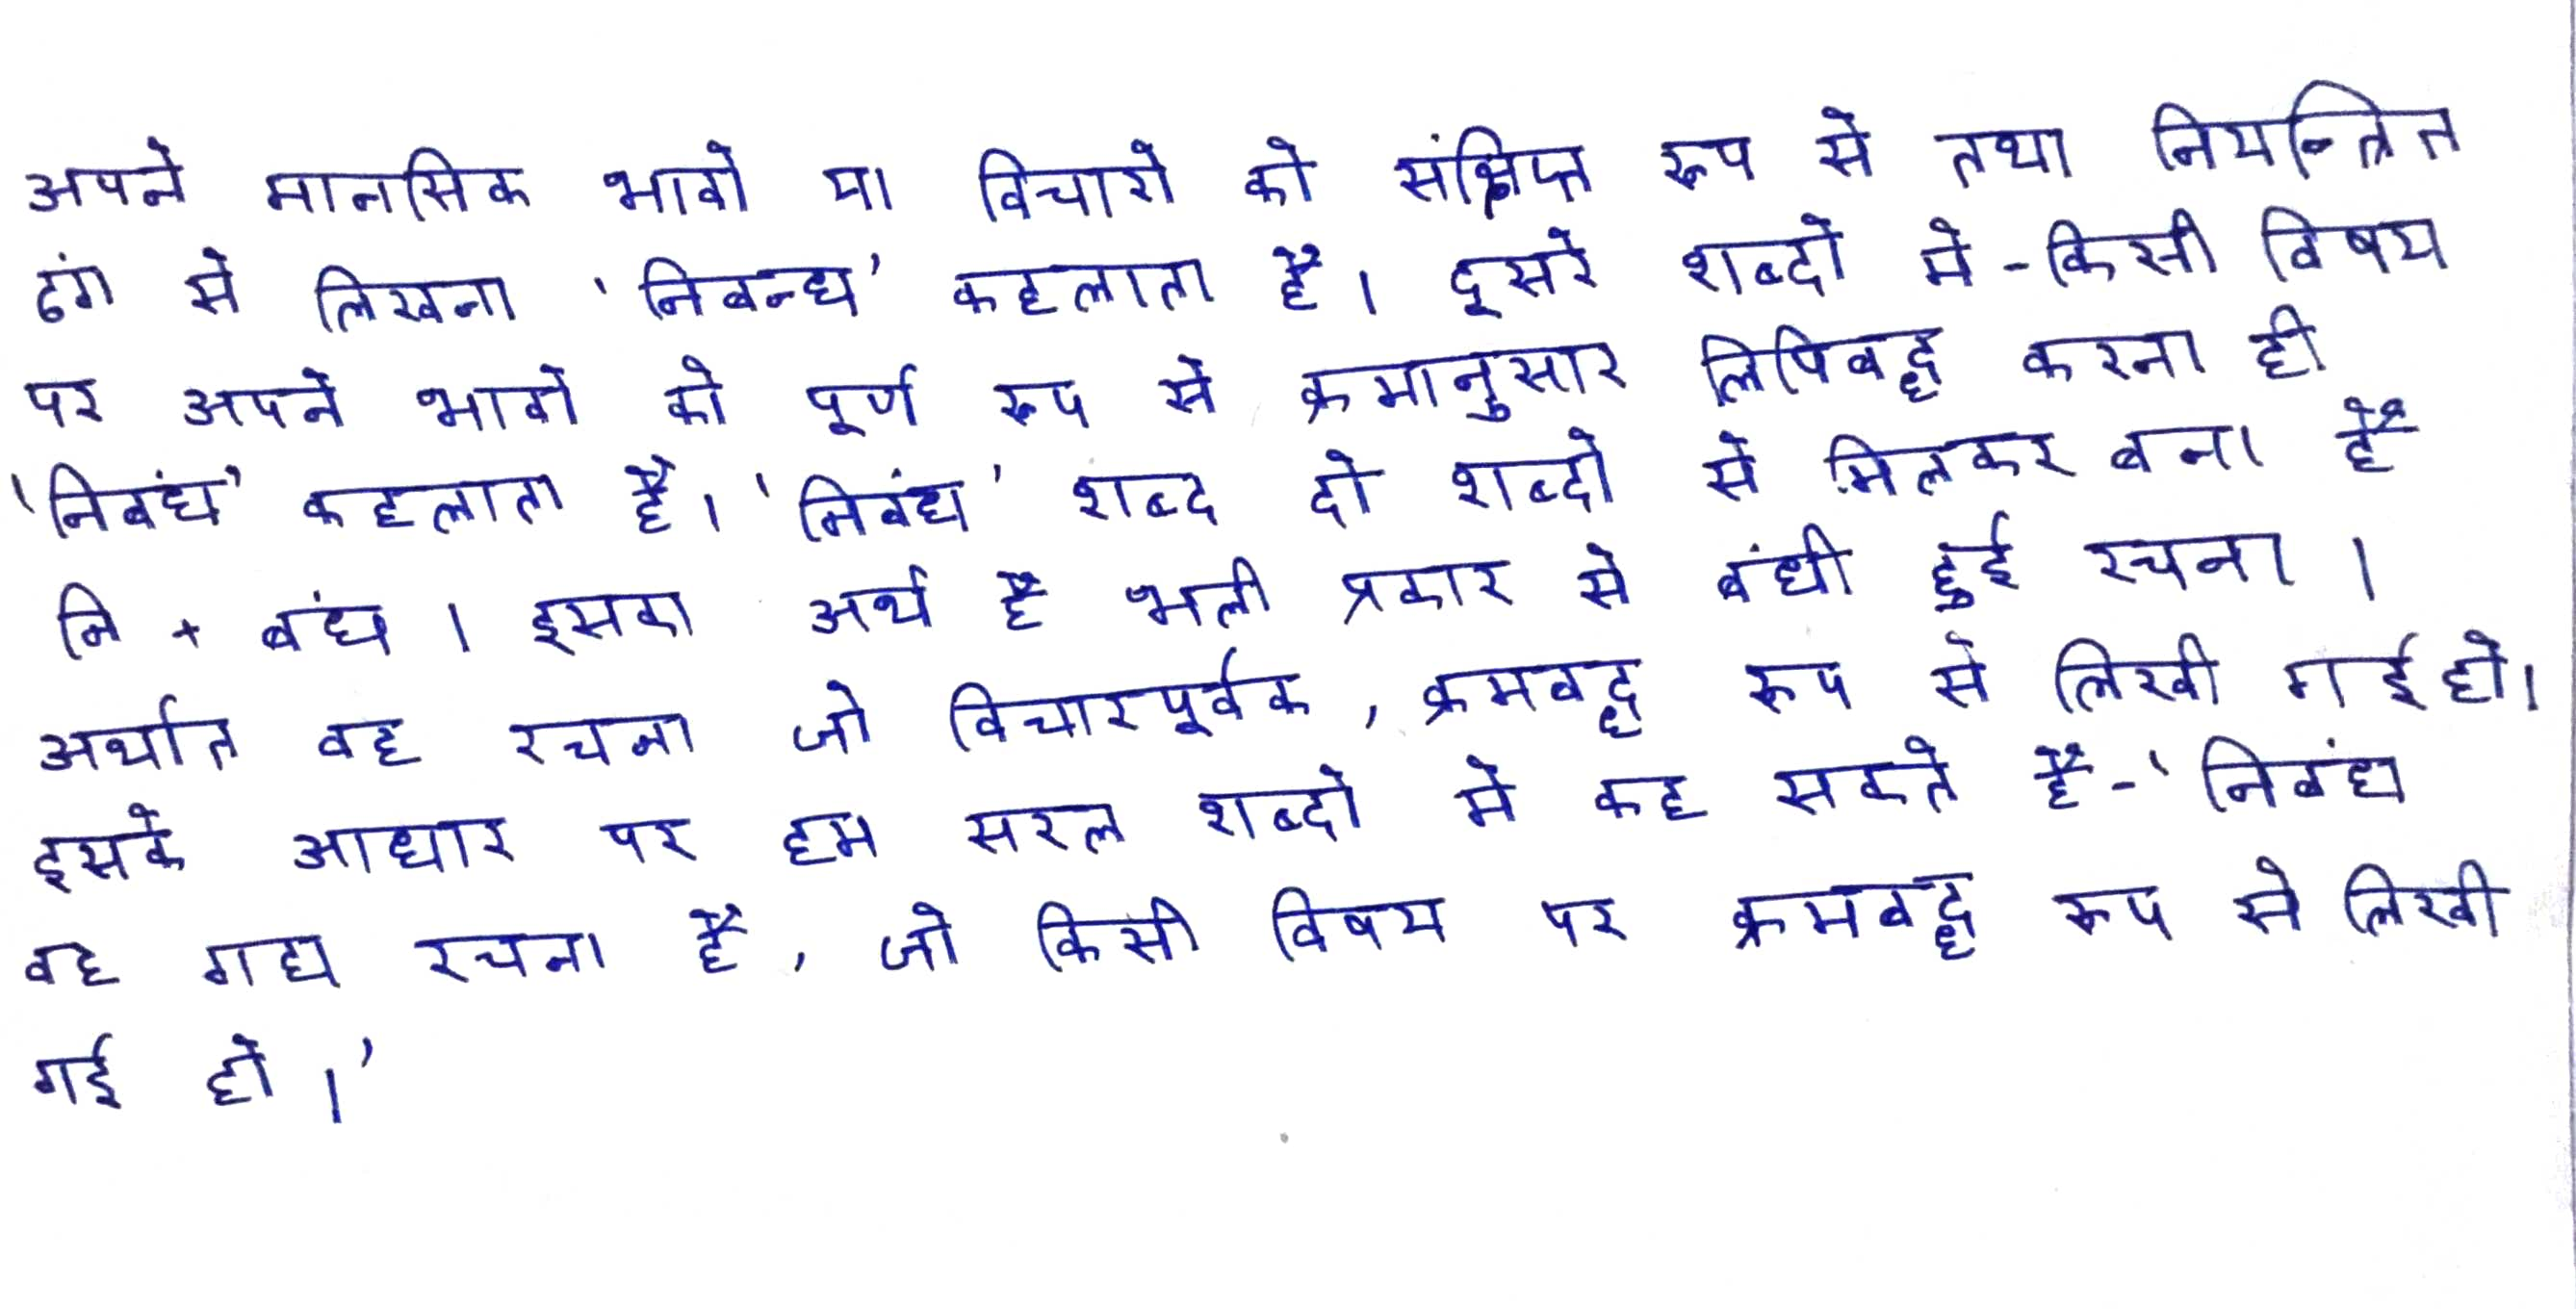 अपने मानसिक भावो या विचारो को संक्षिप्त रूप से तथा नियन्त्रित
ढंग से लिखना 'निबन्ध' कहलाता है। दूसरे शब्दो मे - किसी विषय
पर अपने भावो को पूर्ण रूप से क्रमानुसार लिपिबद्ध करना ही
'निबंध' कहलाता है। 'निबंध' शब्द दो शब्दो से मिलकर बना है
नि + बंध । इसका अर्थ है भली प्रकार से बंधी हुई रचना ।
अर्थात वह रचना जो विचारपूर्वक, क्रमबद्ध रूप से लिखी गई हो।
इसके आधार पर हम सरल शब्दो मे कह सकते है - 'निबंध
वह गद्य रचना है, जो किसी विषय पर क्रमबद्ध रूप से लिखी
गई हो ।'